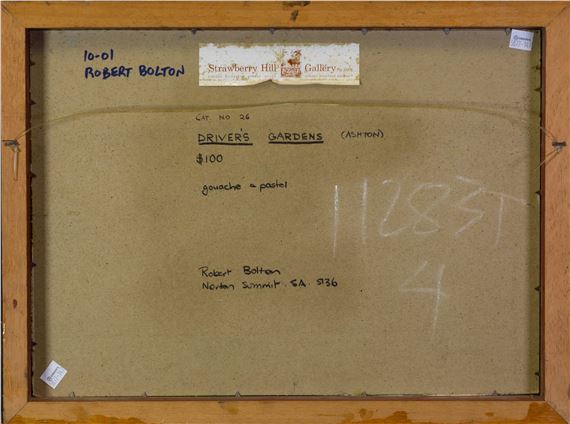 10-01
ROBERT BOLTON
Strawberry Hill Gallery
CAT. NO 26
DRIVER'S GARDENS (ASHTON)
$100
gouache & pastel
Robert Bolton
Norton Summit. SA. 5136
11283T
4